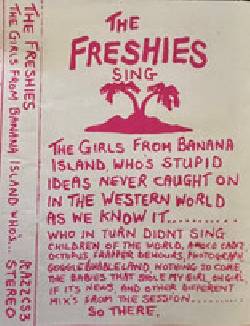 THE FRESHIES
THE GIRLS FROM BANANA ISLAND WHO'S...
RAZZ CS3
STEREO
THE
FRESHIES
SING
THE GIRLS FROM BANANA
ISLAND WHO'S STUPID
IDEAS NEVER CAUGHT ON
IN THE WESTERN WORLD
AS WE KNOW IT...........
WHO IN TURN DIDNT SING
CHILDREN OF THE WORLD, CADET
OCTOPUS PHOTOGRAPH
NOTHING TO COME,
THE BABIES THAT STOLE MY GIRL, OH GIRL,
IF ITS NEWS, AND OTHER DIFFERENT
MIX'S FROM THE SESSION..........
SO THERE.